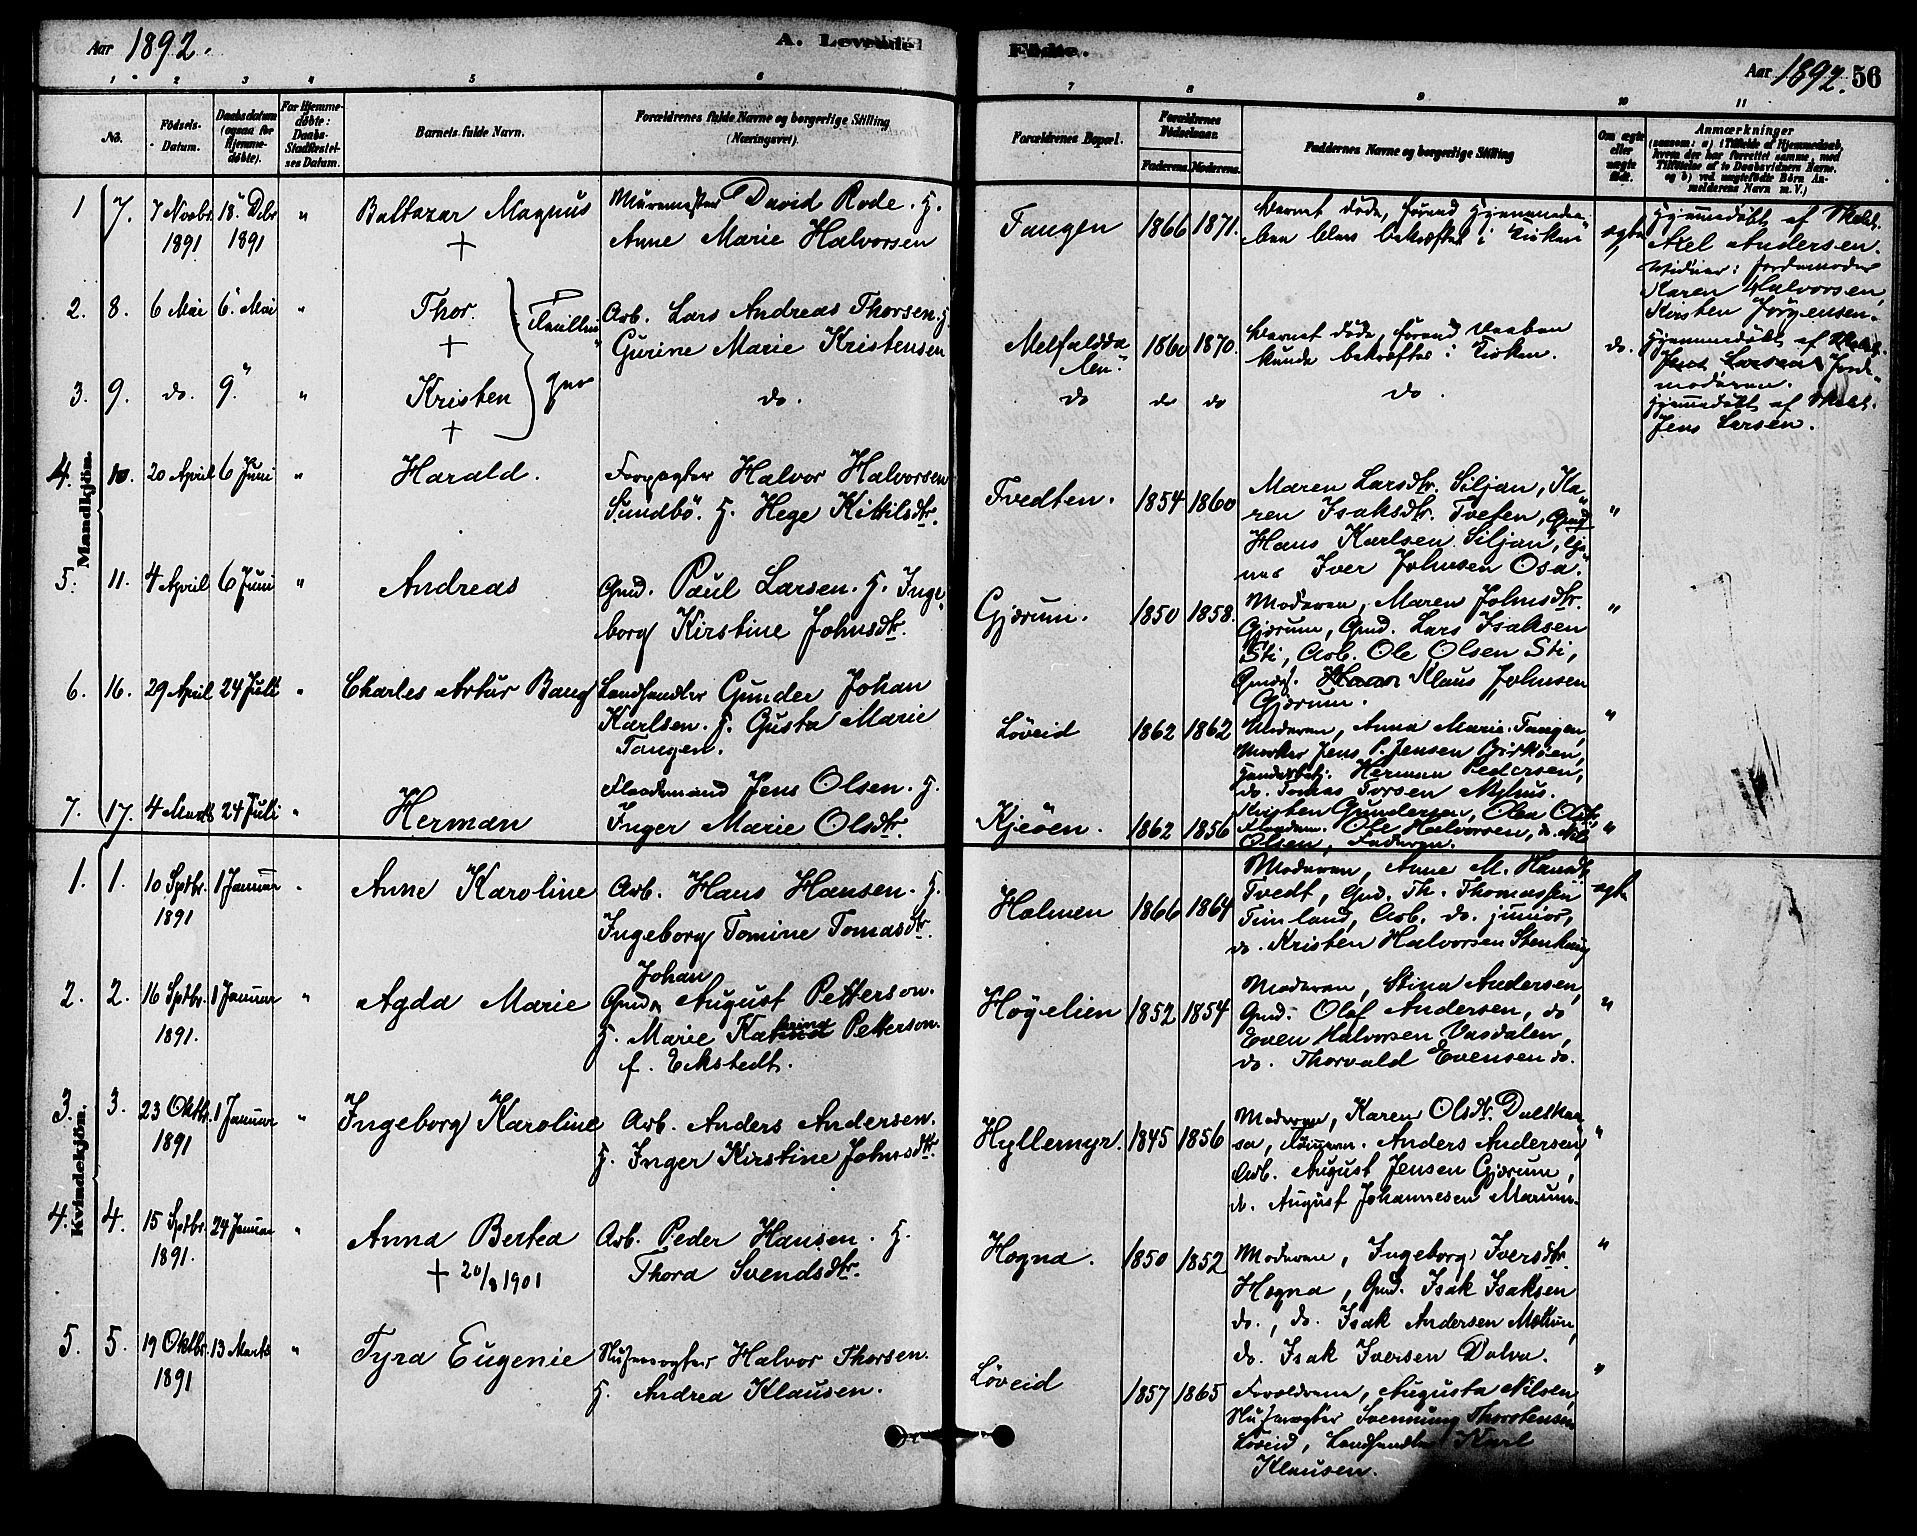 Aar 1892.
A. Levende
Fødte.
Aar 1892.
56
1 2 3 4 5 6 7 8 9 10 11
No.
Födsels-
Datum.
Daabsdatum
(ogsaa for
Hjemme-
døbte).
For Hjemme-
døbte:
Daabs-
Stadfæstel-
ses Datum.
Barnets fulde Navn.
Forældrenes fulde Navne og borgerlige Stilling
(Næringsvei).
Forældrenes Bopæl.
Forældrenes
Fødselsaar.
Faderens. Moderens.
Faddernes Navne og borgerlige Stilling
Om ægte
eller
uægte
født.
Anmærkninger
(saasom: a) i Tilfælde af Hjemmedaab,
hvem der har forrettet samme, med
Tilføielse af to Daabsvidners Navne,
og b) ved uægtefødte Børn An-
melderens Navn m. V.)
Mandkjön.
1 7. 7 Novbr. 18 Debr "
1891 1891
Baltazar Magnus
+
Muremester David Rode. H.
Anne Marie Halvorsen
Tangen 1866 1871.
Barnet døde, forend Hjemmedaa-
ben blev bekræftet i Kirken
ægte
Hjemmedøbt af Skolel.
Axel Andersen.
Vidner: Jordemoder
Karen Halvorsen,
Kirsten Jörgensen.
2. 8. 6 Mai 6. Mai "
Thor.
+
Tvillin-
ger
Arb. Lars Andreas Thorsen. H
Gurine Marie Kristensen
Melfaldda
len. 1860 1870.
Barnet døde, forend Daaben
kunde bekræftes i Kirken.
do.
Hjemmedøbt af Skolel.
Jens Larsen Jorde-
moderen.
3. 9. do. 9. "
Kristen
+
do.
do do do
do.
Hjemmedøbt af Skolel.
Jens Larsen.
4. 10. 20 April 6 Juni "
Harald.
Forpagter Halvor Halvorsen
Sundbö. H. Hege Kittilsdtr.
Tvedten. 1854 1860
Maren Larsdtr. Siljan, Ka-
ren Isaksdtr. Tvefen, Gmd
Hans Karlsen Siljan, Tje-
ner Iver Johnsen Osa.
"
5. 11. 4 April 6 Juni "
Andreas
Gmd. Paul Larsen. H. Inge-
borg Kirstine Johnsdtr.
Gjærum. 1850 1858.
Moderen, Maren Johnsdtr.
Gjærum, Gmd. Lars Isaksen
Sti, Arb. Ole Olsen Sti,
Gmdsf. Klaus Johnsen
Gjærum.
"
6. 16. 29 April 24 Juli "
Charles Artur Bang
Landhandler Gunder Johan
Karlsen. H. Gusta Marie
Tangen.
Løveid 1862 1862
Moderen, Anna Marie Tangen,
Jens P. Jensen Birköen,
Handelsbetj. Herman Pedersen,
do. Tomas Torsen Myhus.
"
7. 17. 4 Marts 24 Juli "
Herman
Flaademand Jens Olsen. H.
Inger Marie Olsdtr.
Kjeöen. 1862 1856
Kirsten Gundersen, Olea Olsdtr.
Flaadem. Ole Halvorsen, do. Nils
Olsen, Faderen.
"
Kvindekjön.
1. 1. 10 Sptbr. 1 Januar "
1891
Anne Karoline
Arb. Hans Hansen. H.
Ingeborg Tomine Tomasdtr.
Holmen 1866 1864
Moderen, Anne M. Hansdtr
Tvedt, Gmd. Th. Thomassen
Timland, Arb. do. junior,
do. Kristen Halvorsen Stenhaug
ægte
2. 2. 16 Sptbr. 1 Januar "
1891.
Agda Marie
Johan
Gmd. August Petterson.
H. Marie Katrina Petterson
f. Eckstedt.
Høgelien 1852 1854
Moderen, Stina Andersen,
Gmd. Olaf Andersen, do
Even Halvorsen Vasdalen,
do. Thorvald Evensen do.
"
3. 3. 23 Oktbr. 1 Januar "
1891
Ingeborg Karoline
Arb. Anders Andersen.
H. Inger Kirstine Johnsdtr.
Hyllemyr. 1845 1856
Moderen, Karen Olsdtr. Dalskaa-
sa, Anders Andersen,
Arb. August Jensen Gjærum,
do. August Johannesen Marum.
"
4. 4. 15 Sptbr. 24 Januar "
1891.
Anna Bertea
+ 20/8 1901
Arb. Peder Hansen. H.
Thora Svendsdtr.
Hogna. 1850 1852
Moderen, Ingeborg Iversdtr.
Hogna, Gmd. Isak Isaksen
do., do. Isak Andersen Mælum,
do. Isak Iversen Dalva.
"
5. 5. 19 Oktbr. 13 Marts "
1891
Tyra Eugenie
Slusevogter Halvor Thorsen.
H. Andrea Klausen.
Løveid 1857 1865
Forældrene, Augusta Nilsen,
Slusevogter Svennung Thorstensen
Løveid, Landhandler Karl
Klausen.
"